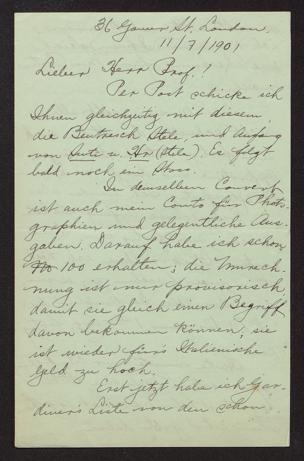 36 Gower St. London.
11/7/1901
Lieber Herr Prof.!
Per Post schicke ich
Ihnen gleichzeitig mit diesem,
die Bentresch Stele, und Anfang
von u. (Stele). Es folgt
bald noch ein Stoss.
In demselben Couvert
ist auch mein Conto für Photo-
graphien und gelegentliche Aus-
gaben. Darauf habe ich schon
M 100 erhalten; die Umrech-
nung ist nur provisorisch
damit sie gleich einen Begriff
davon bekommen können; sie
ist wieder für's Italienische
Geld zu hoch.
Erst jetzt habe ich Gar-
diner's Liste von den schon